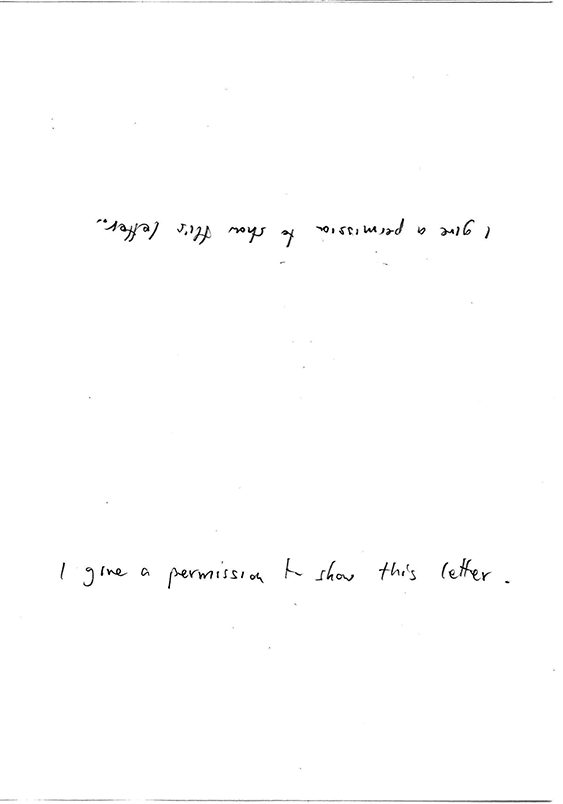 I give a permission to show this letter..
I give a permission to show this letter.